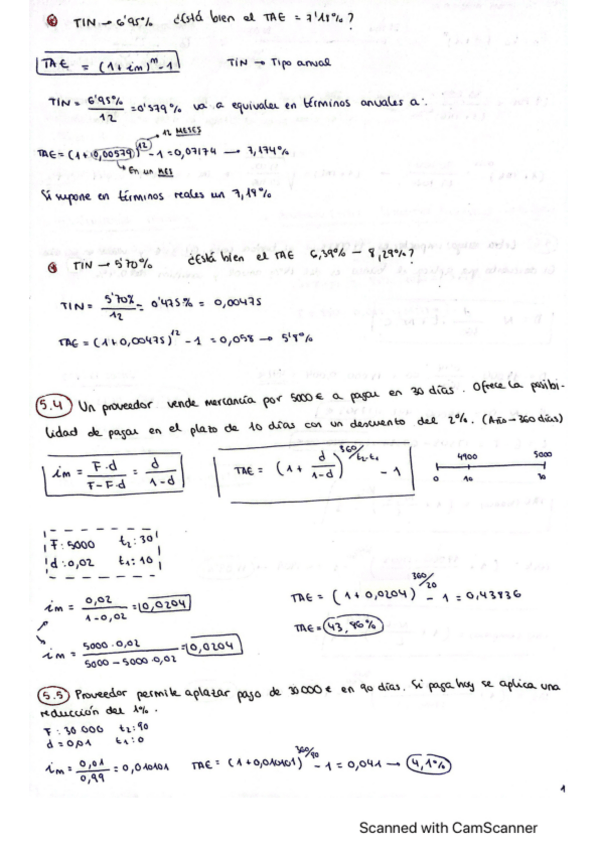 TIN → 6'95% ¿Está bien el TAE = 7'18%?
TAE = (1+im)^m - 1 TIN → Tipo anual
TIN = 6'95% / 12 = 0'579% va a equivaler en términos anuales a:
12 MESES
TAE = (1+0,00579)^12 - 1 = 0,07174 → 7,174%
En un MES
Si supone en términos reales un 7,19%
TIN → 5'70% ¿Está bien el TAE 6,39% - 8,29%?
TIN = 5'70% / 12 = 0'475% = 0,00475
TAE = (1+0,00475)^12 - 1 = 0,058 → 5'8%
5.4 Un proveedor vende mercancía por 5000€ a pagar en 30 días. Ofrece la posibi-
lidad de pagar en el plazo de 10 días con un descuento del 2%. (Año → 360 días)
im = F·d / F-F·d = d / 1-d TAE = (1 + d / 1-d)^360/t2-t1 - 1 4900 5000
0 10 30
F: 5000 t2: 30
d: 0,02 t1: 10
im = 0,02 / 1-0,02 = 0,0204 TAE = (1+0,0204)^360/20 - 1 = 0,43836
im = 5000·0,02 / 5000-5000·0,02 = 0,0204 TAE = 43,86%
5.5 Proveedor permite aplazar pago de 30000€ en 90 días. Si paga hoy se aplica una
reducción del 1%.
F: 30 000 t2: 90
d = 0,01 t1: 0
im = 0,01 / 0,99 = 0,010101 TAE = (1+0,010101)^360/90 - 1 = 0,041 → 4,1%
1
Scanned with CamScanner